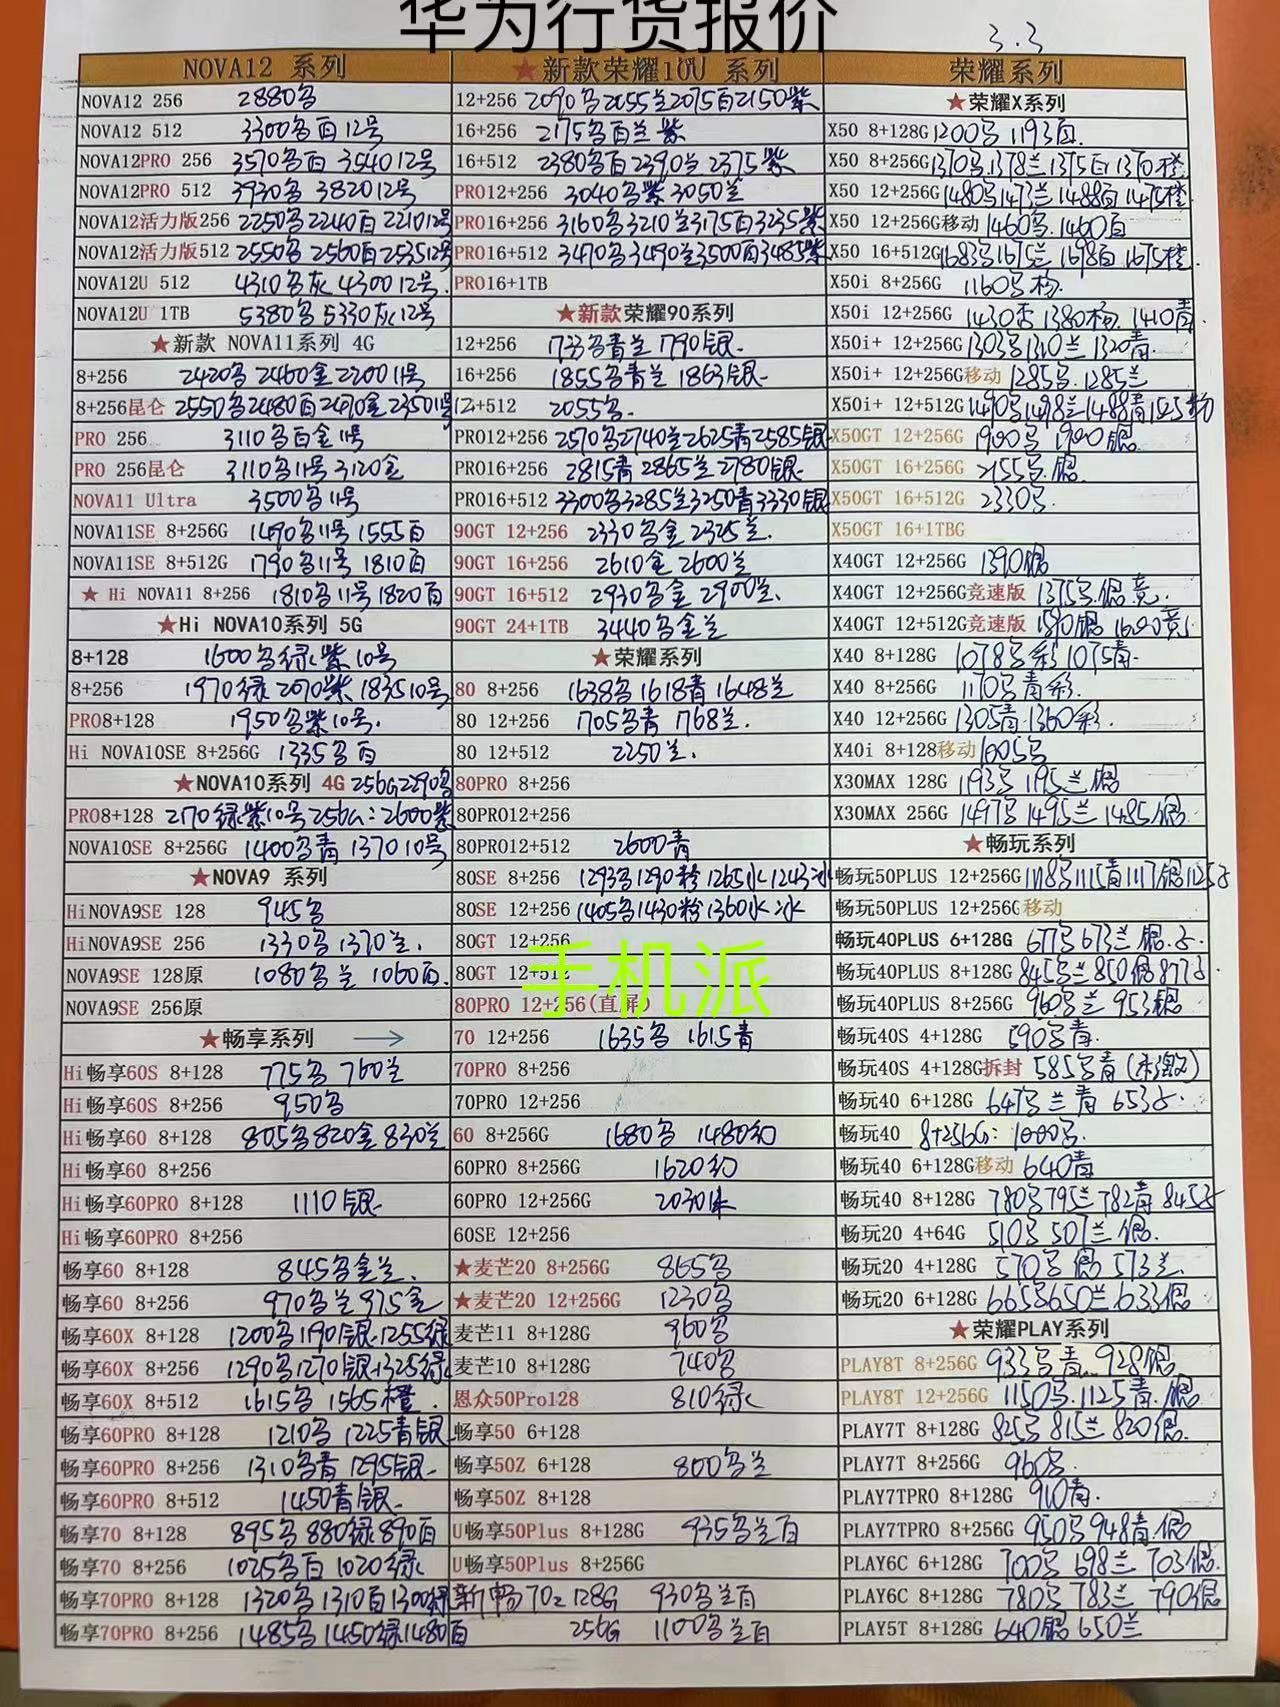 华为行货报价
3.3
NOVA12 系列
NOVA12 256 2880名
NOVA12 512 3300名百12号
NOVA12PRO 256 3570名百 3540 12号
NOVA12PRO 512 3930名 3820 12号
NOVA12活力版256 2250名2240百2210 12号
NOVA12活力版512 2550名2560百2535 12号
NOVA12U 512 4310名灰 4300 12号.
NOVA12U 1TB 5380名 5330灰12号
★新款 NOVA11系列 4G
8+256 2420名 2460金 2200 11号
8+256昆仑 2550名2480百2490金 2350 11号
PRO 256 3110名百金 11号
PRO 256昆仑 3110名11号 3120金
NOVA11 Ultra 3500名11号
NOVA11SE 8+256G 1490名11号 1555百
NOVA11SE 8+512G 1790名11号 1810百
★ Hi NOVA11 8+256 1810名11号 1820百
★Hi NOVA10系列 5G
8+128 1600名绿紫10号
8+256 1970绿 2070紫 1835 10号
PRO8+128 1950名紫10号.
Hi NOVA10SE 8+256G 1335名百
★NOVA10系列 4G 256G2290名
PRO8+128 2170绿紫10号256G:2600紫
NOVA10SE 8+256G 1400名青 1370 10号
★NOVA9 系列
HiNOVA9SE 128 945名
HiNOVA9SE 256 1330名1370兰.
NOVA9SE 128原 1080名兰 1060百.
NOVA9SE 256原
★畅享系列 →
Hi畅享60S 8+128 775名 760兰
Hi畅享60S 8+256 950名
Hi畅享60 8+128 805名820金830兰
Hi畅享60 8+256
Hi畅享60PRO 8+128 1110银
Hi畅享60PRO 8+256
畅享60 8+128 845名金兰.
畅享60 8+256 970名兰 975金
畅享60X 8+128 1200名1190银1255绿
畅享60X 8+256 1290名1270银1325绿
畅享60X 8+512 1615名 1565橙.
畅享60PRO 8+128 1210名 1225青银
畅享60PRO 8+256 1310名青 1295银
畅享60PRO 8+512 1450青银
畅享70 8+128 895名 880绿890百
畅享70 8+256 1025名百 1020绿
畅享70PRO 8+128 1320名 1310百1300绿
畅享70PRO 8+256 1485名1450绿1480百
★新款荣耀100 系列
12+256 2090名2055兰2075百2150紫
16+256 2175名百兰紫
16+512 2380名百2390兰 2375紫
PRO12+256 3040名紫3050兰
PRO16+256 3160名3210兰3175百3235紫
PRO16+512 3470名3490兰3500百3485紫
PRO16+1TB
★新款荣耀90系列
12+256 1733名青兰 1790银
16+256 1855名青兰 1863银
12+512 2055名
PRO12+256 2570名2740兰2625青2585银
PRO16+256 2815青 2865兰 2780银
PRO16+512 3300名3285兰3250青3330银
90GT 12+256 2330名金 2325兰.
90GT 16+256 2610金 2600兰
90GT 16+512 2930名金 2900兰.
90GT 24+1TB 3440名金兰
★荣耀系列
80 8+256 1638名 1618青 1648兰
80 12+256 1705名青 1768兰.
80 12+512 2250兰.
80PRO 8+256
80PRO12+256
80PRO12+512 2600青
80SE 8+256 1293名1290粉 1265水 1243冰
80SE 12+256 1405名1430粉1360水冰
80GT 12+256
80GT 12+512
手机派
80PRO 12+256(直屏)
70 12+256 1635名 1615青
70PRO 8+256
70PRO 12+256
60 8+256G 1680名 1480幻
60PRO 8+256G 1620幻
60PRO 12+256G 2030
60SE 12+256
★麦芒20 8+256G 865名
★麦芒20 12+256G 1230名
麦芒11 8+128G 960名
麦芒10 8+128G 740名
恩众50Pro128 810绿
畅享50 6+128
畅享50Z 6+128 800名兰
畅享50Z 8+128
U畅享50Plus 8+128G 935名兰百
U畅享50Plus 8+256G
新畅70z 128G 930名兰百
256G 1100名兰百
荣耀系列
★荣耀X系列
X50 8+128G 1200名 1193百
X50 8+256G 1370名1378兰1375百1370橙
X50 12+256G 1480名1473兰1488百1475橙
X50 12+256G移动 1460名.1460百
X50 16+512G 1683名1675兰 1698百 1675橙
X50i 8+256G 1160名粉.
X50i 12+256G 1430名 1380粉 1410青
X50i+ 12+256G 1303名1310兰1320青.
X50i+ 12+256G移动 1285名.1285兰
X50i+ 12+512G 1490名1498兰1488青1525粉
X50GT 12+256G 1900名 1900银
X50GT 16+256G 2155名.银
X50GT 16+512G 2330名
X50GT 16+1TBG
X40GT 12+256G 1390银
X40GT 12+256G竞速版 1375名.银 竞.
X40GT 12+512G竞速版 1590银 1600竞
X40 8+128G 1078名彩 1075青.
X40 8+256G 1170名青彩.
X40 12+256G 1305青.1360彩.
X40i 8+128移动 1005名
X30MAX 128G 1193名 1195兰银
X30MAX 256G 1497名 1495兰 1485银
★畅玩系列
畅玩50PLUS 12+256G 1118名1115青1117银
畅玩50PLUS 12+256G 移动
畅玩40PLUS 6+128G 677名 673兰 银.
畅玩40PLUS 8+128G 845名兰 850银877
畅玩40PLUS 8+256G 960名兰 953银
畅玩40S 4+128G 590名青.
畅玩40S 4+128G拆封 585名青(未激)
畅玩40 6+128G 647名兰青 653
畅玩40 8+256G: 1000名.
畅玩40 6+128G移动 640青
畅玩40 8+128G 780名795兰782青 845
畅玩20 4+64G 510名 507兰 银.
畅玩20 4+128G 570名 银 573兰.
畅玩20 6+128G 665名650兰633银
★荣耀PLAY系列
PLAY8T 8+256G 933名青 928银
PLAY8T 12+256G 1150名.1125青.银
PLAY7T 8+128G 825名 815兰 820银.
PLAY7T 8+256G 960名.
PLAY7TPRO 8+128G 910青.
PLAY7TPRO 8+256G 950名948青银
PLAY6C 6+128G 700名 698兰 703银.
PLAY6C 8+128G 780名 783兰 790银
PLAY5T 8+128G 640银 650兰